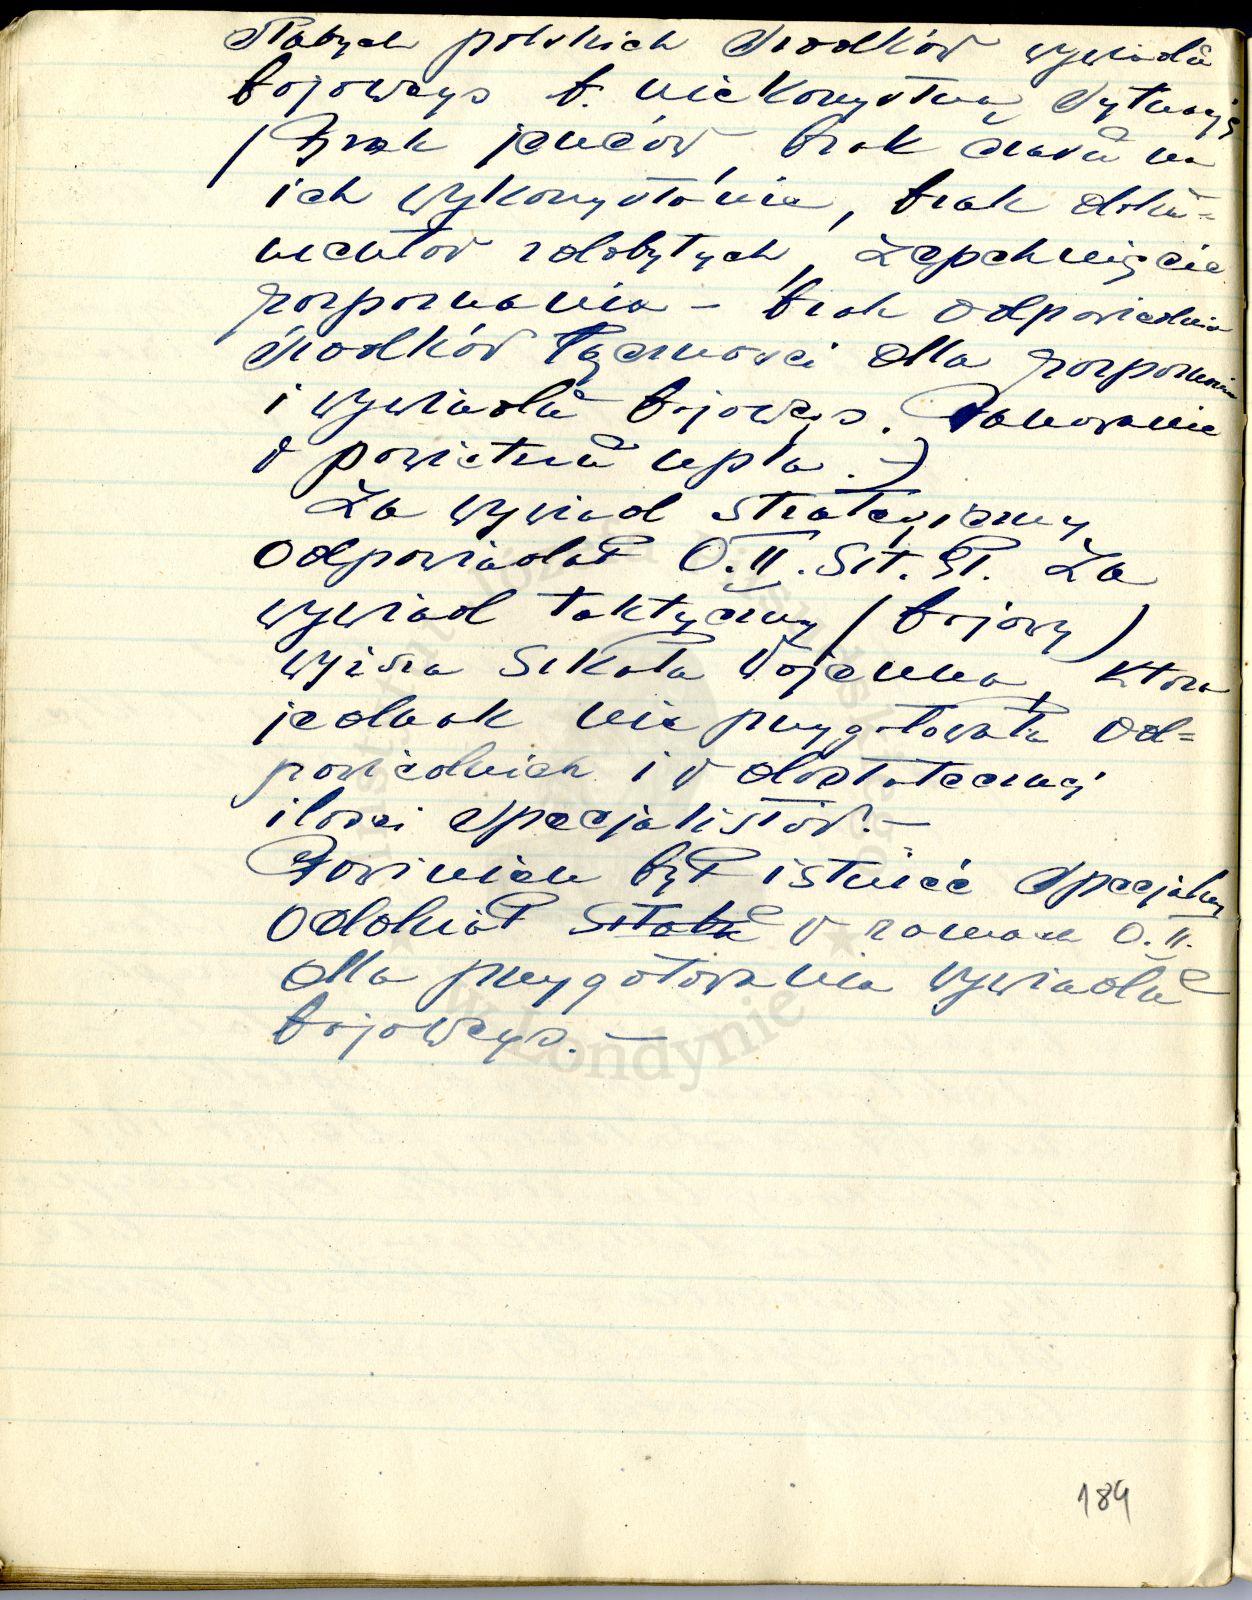 słabych polskich środków wywiadu
bojowego b. niekorzystna sytuacja
(Brak jeńców, brak czasu na
ich wykorzystanie, brak doku=
mentów zdobytych, zepchnięcie
rozpoznania – brak odpowiednich
środków łączności dla rozpoznania
i wywiadu bojowego. Panowanie
w powietrzu npla. –)
Za wywiad strategiczny
odpowiadał O.II. Szt. Gł. Za
wywiad taktyczny (bojowy)
wyższa Szkoła Wojenna, która
jednak nie przygotowała od=
powiednich i w dostatecznej
ilości specjalistów. –
Powinien był istnieć specjalny
Oddział Sztabu w ramach O.II.
dla przygotowania wywiadu
bojowego. –
Instytut Józefa Piłsudskiego
w Londynie
189